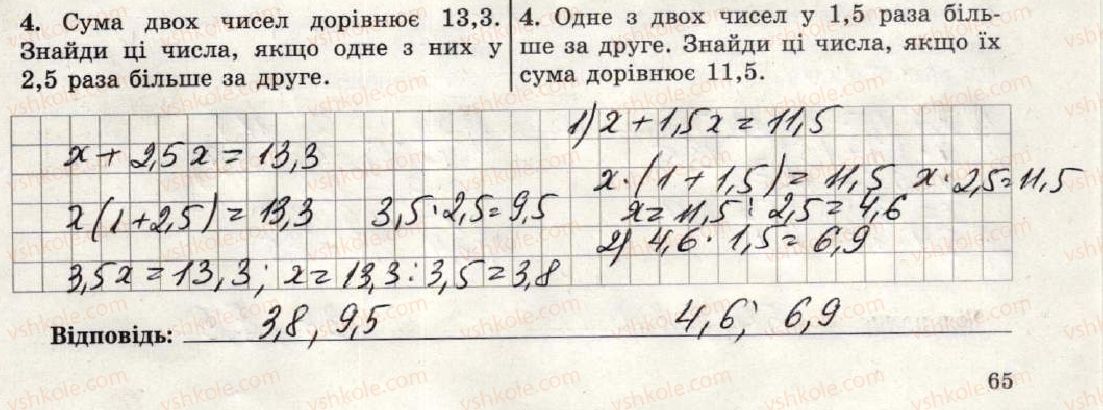 4. Сума двох чисел дорівнює 13,3.
Знайди ці числа, якщо одне з них у
2,5 раза більше за друге.
4. Одне з двох чисел у 1,5 раза біль-
ше за друге. Знайди ці числа, якщо їх
сума дорівнює 11,5.
x + 2,5x = 13,3
x(1+2,5) = 13,3 3,5·2,5=9,5
3,5x = 13,3; x = 13,3 : 3,5 = 3,8
1) x + 1,5x = 11,5
x·(1 + 1,5) = 11,5 x·2,5=11,5
x = 11,5 : 2,5 = 4,6
2) 4,6 · 1,5 = 6,9
Відповідь: 3,8, 9,5 4,6; 6,9
65
vshkole.com